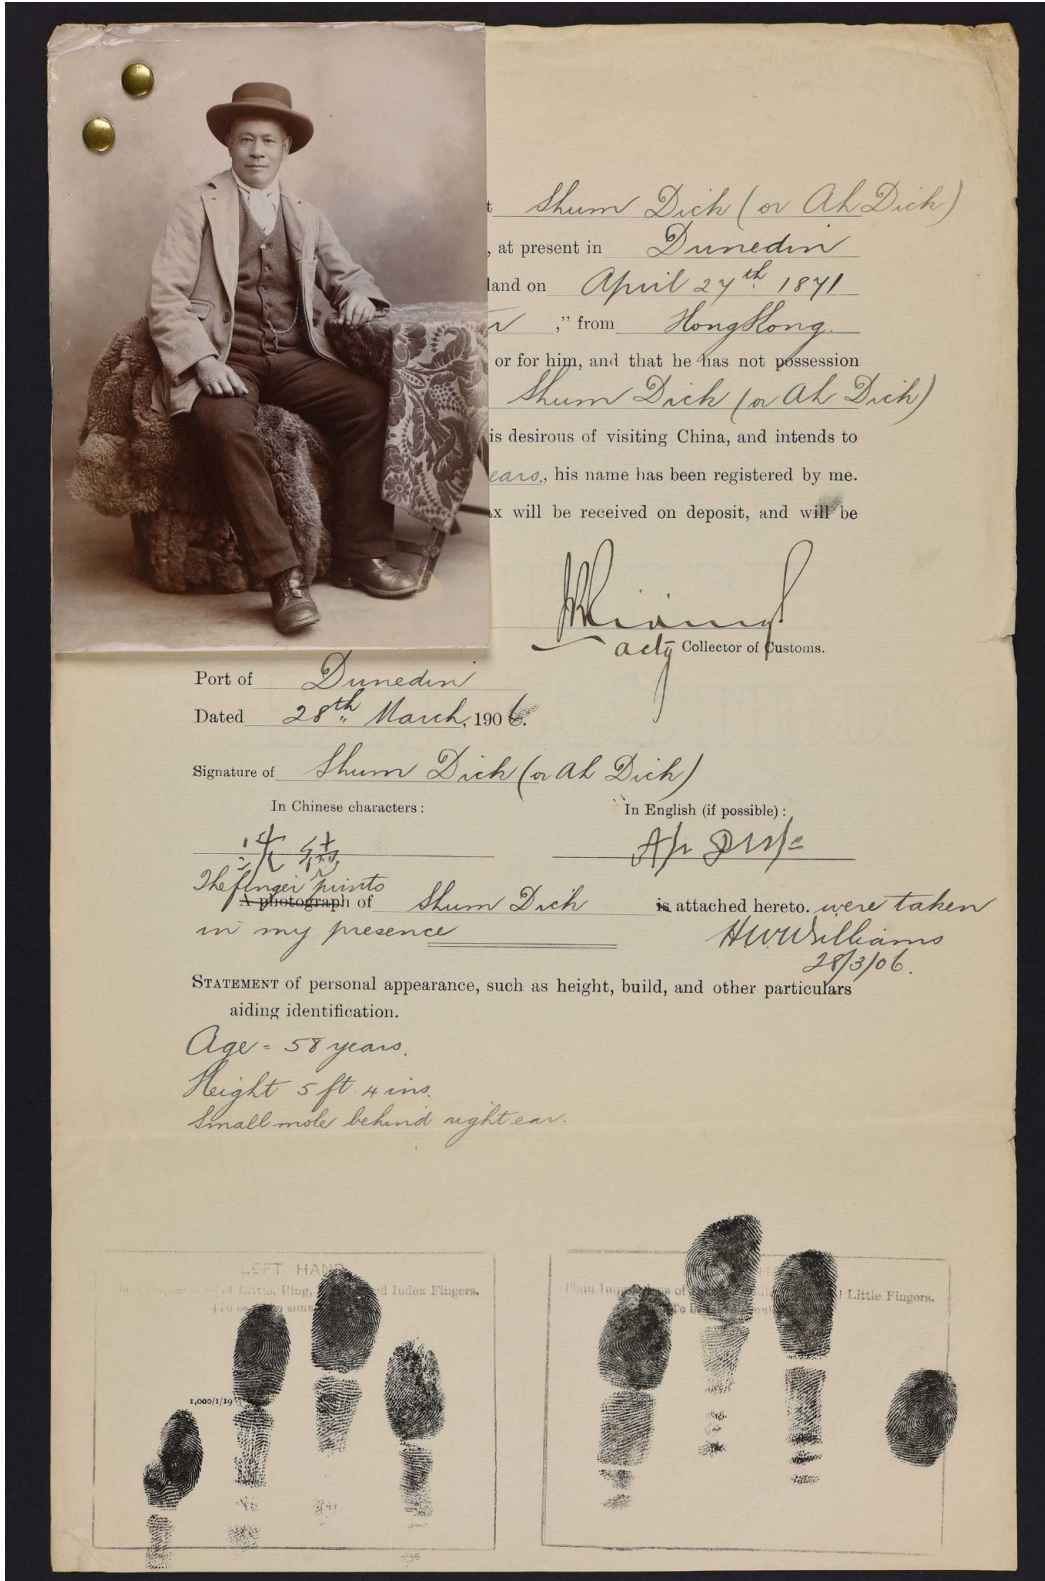 Shum Dick (or Ah Dick)
, at present in Dunedin
land on April 27th 1871
," from Hong Kong.
or for him, and that he has not possession
Shum Dick (or Ah Dick)
is desirous of visiting China, and intends to
ears, his name has been registered by me.
x will be received on deposit, and will be
actg Collector of Customs.
Port of Dunedin
Dated 28th March, 1906.
Signature of Shum Dick (or Ah Dick)
In Chinese characters:
In English (if possible):
The finger prints
A photograph of Shum Dick is attached hereto. were taken
in my presence
HW Williams
28/3/06.
STATEMENT of personal appearance, such as height, build, and other particulars
aiding identification.
Age = 58 years.
Height 5 ft. 4 ins.
Small mole behind right ear.
LEFT HAND
of Little, Ring, Index Fingers.
Plain of Little Fingers.
1,000/1/19